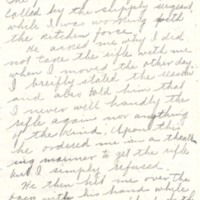 The
called by the supply sergeant
while I was working with
the kitchen force.
He asked me why I did
not take the rifle with me
when I moved the other day.
I briefly stated the reason
and also told him that
I never will handly the
rifle again nor anything
of the kind. Upon this
he ordered me in a threaten-
ing manner to get the rifle
but I simply refused.
He then held me over the
open with his hand while